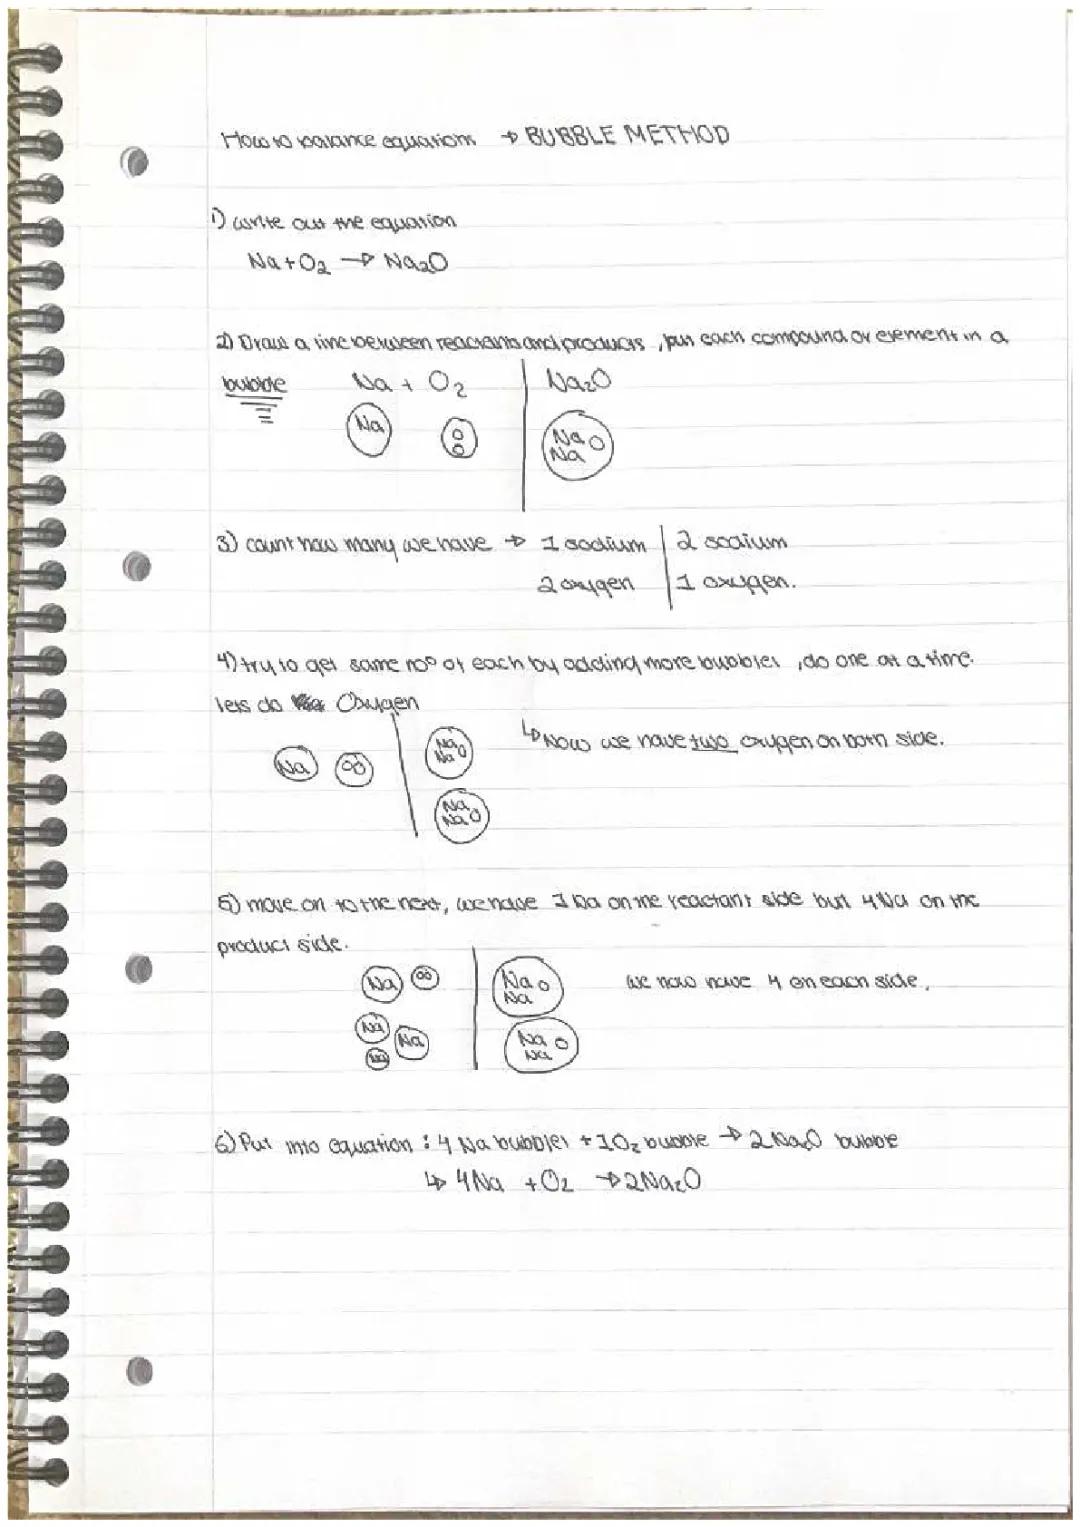 How to balance equations → BUBBLE METHOD
1) write out the equation
Na + O₂ → Na₂O
2) Draw a line between reactants and products, put each compound or element in a
bubble Na + O₂ | Na₂O
Na O O | Na Na O
3) count how many we have → 1 sodium | 2 sodium
2 oxygen | 1 oxygen.
4) try to get same no° of each by adding more bubbles, do one at a time.
lets do Oxygen
↳ Now we have two oxygen on both side.
Na O O | Na Na O
Na Na O
5) move on to the next, we have 1 Na on the reactant side but 4 Na on the
product side.
Na O O | Na Na O we now have 4 on each side,
Na Na Na | Na Na O
6) Put into equation : 4 Na bubbles + 1O₂ bubble → 2 Na₂O bubble
↳ 4Na + O₂ → 2Na₂O